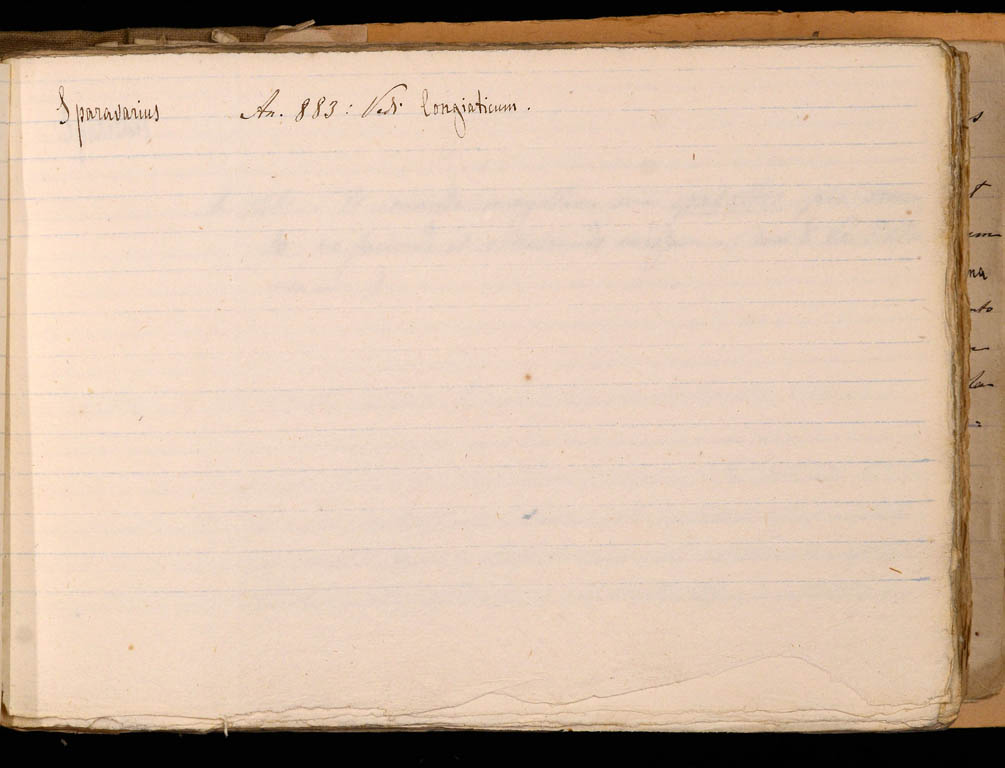 Sparavarius An. 883: Vedi longiaticum.